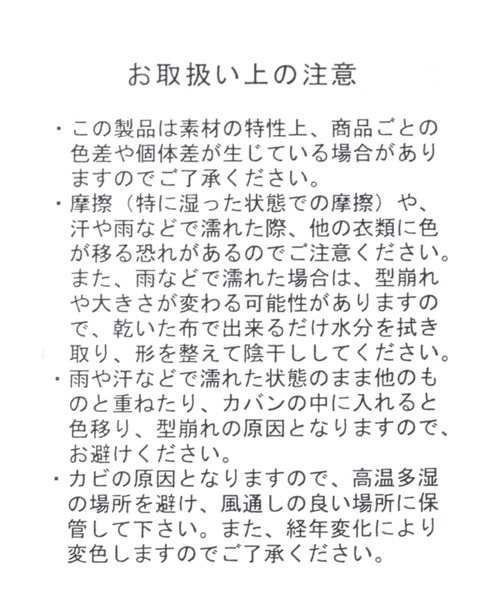 お取扱い上の注意
・この製品は素材の特性上、商品ごとの
色差や個体差が生じている場合があり
ますのでご了承ください。
・摩擦（特に湿った状態での摩擦）や、
汗や雨などで濡れた際、他の衣類に色
が移る恐れがあるのでご注意ください。
また、雨などで濡れた場合は、型崩れ
や大きさが変わる可能性がありますの
で、乾いた布で出来るだけ水分を拭き
取り、形を整えて陰干ししてください。
・雨や汗などで濡れた状態のまま他のも
のと重ねたり、カバンの中に入れると
色移り、型崩れの原因となりますので、
お避けください。
・カビの原因となりますので、高温多湿
の場所を避け、風通しの良い場所に保
管して下さい。また、経年変化により
変色しますのでご了承ください。